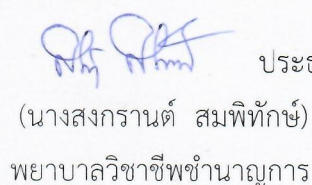 ประธ
(นางสงกรานต์ สมพิทักษ์)
พยาบาลวิชาชีพชำนาญการ